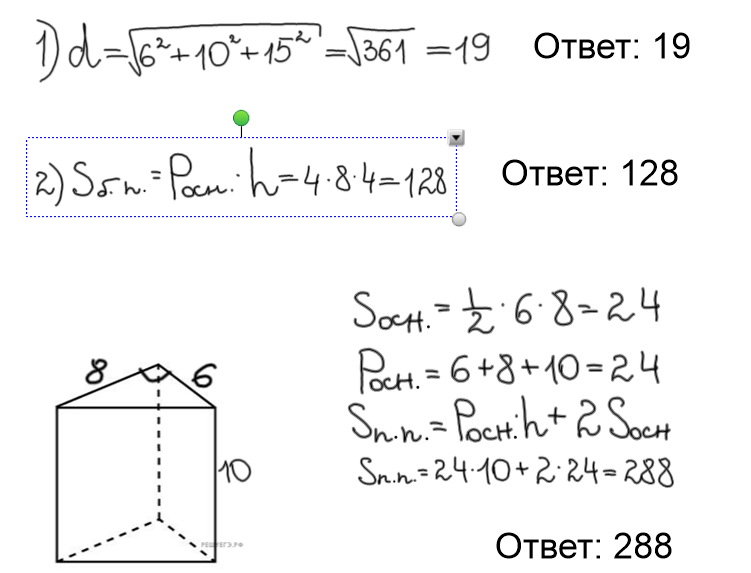 1) d = √6² + 10² + 15² = √361 = 19 Ответ: 19
2) Sб.п. = Pосн. · h = 4 · 8 · 4 = 128 Ответ: 128
Sосн. = 1/2 · 6 · 8 = 24
8 6
Pосн. = 6 + 8 + 10 = 24
Sп.п. = Pосн. · h + 2 Sосн
10
Sп.п. = 24 · 10 + 2 · 24 = 288
РЕШУЕГЭ.РФ
Ответ: 288